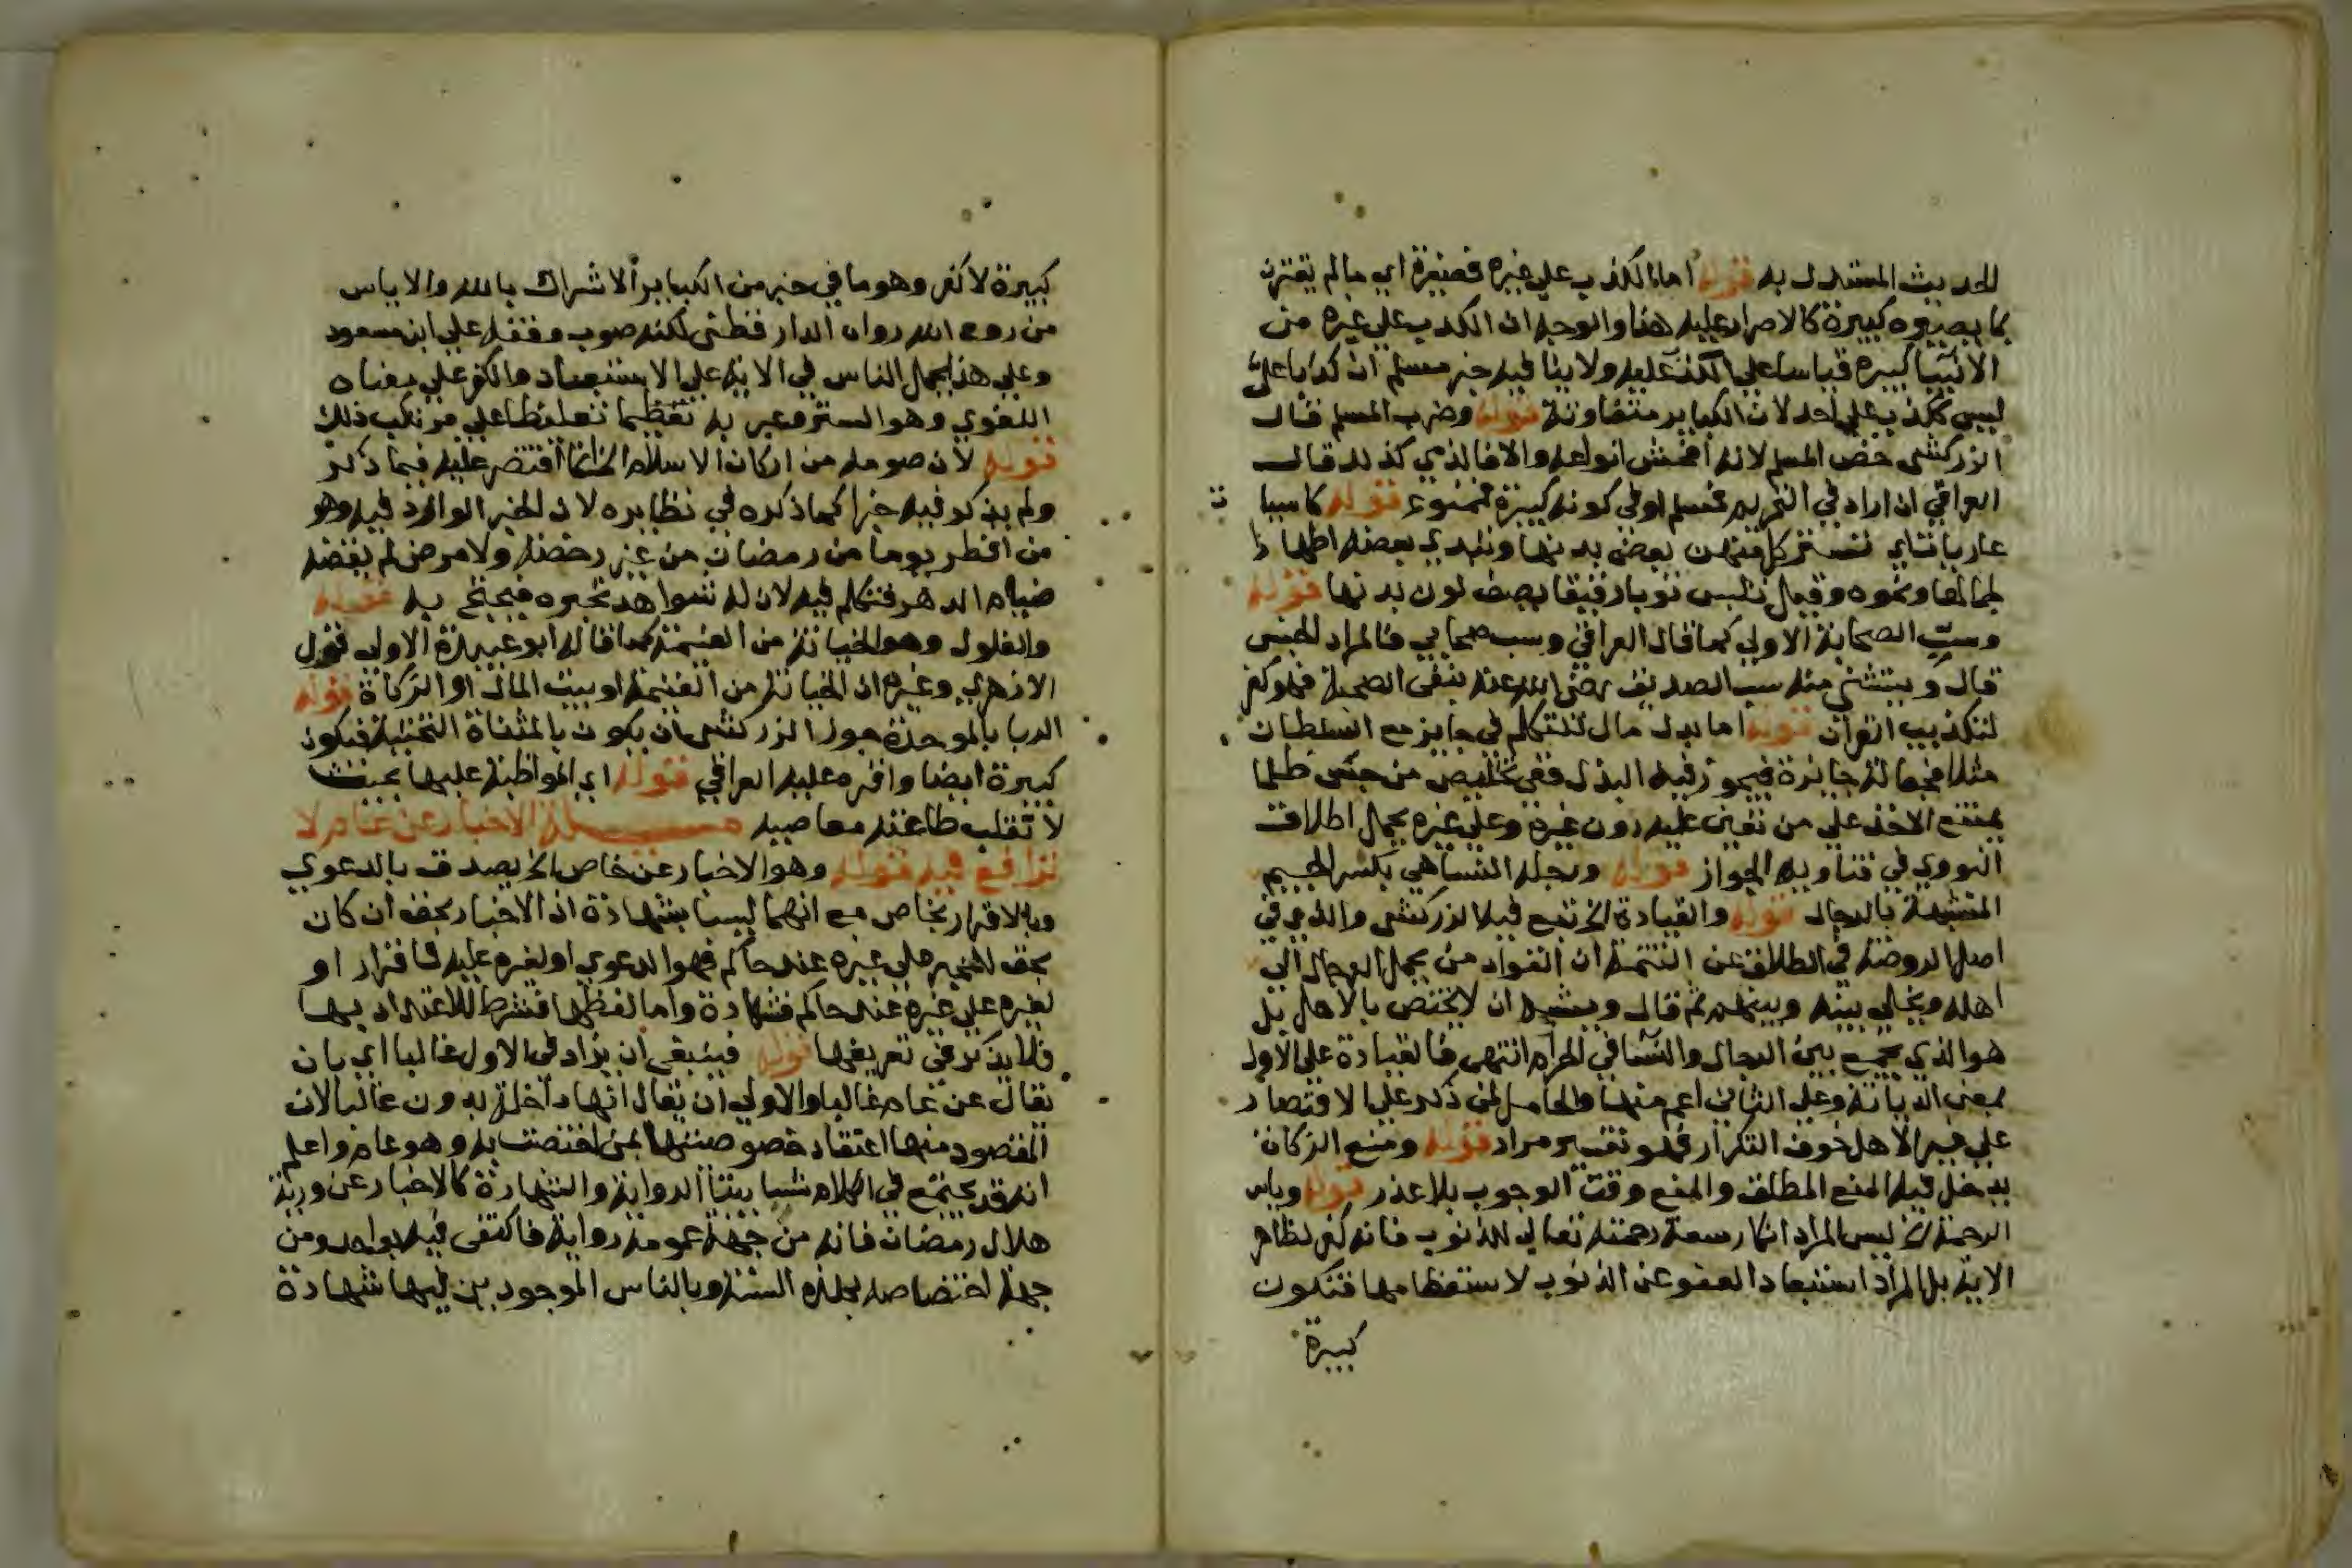 الحديث المستدل به قوله اما الكذب علي غيره فصغيرة اي ما لم يقترن
بما يصيره كبيرة كالاصرار عليه هذا والوجه ان الكذب علي غيره من
الانبيا كبيره قياسا علي الكذب عليه ولا ينافيه خبر مسلم ان كذبا علي
ليس ككذب علي احد لان الكباير متفاوتة قوله وضرب المسلم قال
الزركشي خص المسلم لانه افحش انواعه والا فالذمي كذلك قال
العراقي ان اراد في التحريم فمسلم او في كونه كبيرة فممنوع قوله كاسيا
عاريات اي تستر كل منهن بعض بدنها وتبدي بعضه اظهارا
لجمالها ونحوه وقيل تلبس ثوبا رقيقا يصف لون بدنها قوله
وسب الصحابة الاولي كما قال العراقي وسب صحابي فالمراد الجنس
قال ويستثني منه سب الصديق رضي الله عنه بنفي الصحبة فهو كفر
لتكذيب القران قوله اما بدل مال للتكلم في جايز مع السلطان
مثلا فجعالة جايزة فيجوز فيه البذل ففي تخليص من حبس ظلما
يمتنع الاخذ علي من تعين عليه دون غيره وعلي غيره يحمل اطلاق
النووي في فتاويه الجواز قوله ورجلة النسا هي بكسر الجيم
المتشبهة بالرجال قوله والقيادة الخ تبع فيه الزركشي والذي في
اصل الروضة في الطلاق عن التتمة ان القواد من يحمل الرجال الي
اهله ويخلي بينه وبينهم ثم قال ويشبه ان لا يختص بالاهل بل
هو الذي يجمع بين الرجال والنسا في الحرام انتهي فالقيادة علي الاول
بمعني الدياثة وعلي الثاني اعم منها والحامل لمن ذكر علي الاقتصار
علي غير الاهل خوف التكرار فهو تفسير مراد قوله ومنع الزكاة
يدخل فيه المنع المطلق والمنع وقت الوجوب بلا عذر قوله وياس
الرحمة الخ ليس المراد انكار سعة رحمته تعالي للذنوب فانه كفر لظاهر
الاية بل المراد استبعاد العفو عن الذنوب لاستعظامها فتكون
كبيرة
كبيرة لا كفر وهو ما في خبر من الكباير الاشراك بالله والاياس
من روح الله رواه الدار قطني لكنه صوب وقفه علي ابن مسعود
وعلي هذا يحمل الناس في الاية علي الاستبعاد والكفر علي معناه
اللغوي وهو الستر وعبر به تعظيما تغليظا علي مرتكب ذلك
قوله لان صومه من اركان الاسلام الخ انما اقتصر عليه فيما ذكر
ولم يذكر فيه خبرا كما ذكره في نظايره لان الخبر الوارد فيه وهو
من افطر يوما من رمضان من غير رخصة ولا مرض لم يقضه
صيام الدهر فتكلم فيه لان له شواهد تجبره فيحتج به قوله
والغلول وهو الخيانة من الغنيمة كما قاله ابو عبيدة الاولي قول
الازهري وغيره ان الخيانة من الغنيمة او بيت المال او الزكاة قوله
الربا بالموحدة جوز الزركشي ان يكون بالمثناة التحتية فيكون
كبيرة ايضا واقره عليه العراقي قوله اي المواظبة عليها بحيث
لا تغلب طاعته معاصيه مسئلة الاخبار عن عام لا
ترافع فيه قوله وهو الاخبار عن خاص الخ يصدق بالدعوي
وبالاقرار بخاص مع انهما ليسا بشهادة اذ الاخبار بحق ان كان
بحق للمخبر علي غيره عند حاكم فهو الدعوي او لغيره عليه فاقرار او
لغيره علي غيره عند حاكم فشهادة واما لفظها فشرط للاعتداد بها
فلا يذكر في تعريفها قوله فينبغي ان يزاد في الاول غالبا اي بان
يقال عن عام غالبا والاولي ان يقال انها داخلة بدون غالبا لان
المقصود منها اعتقاد خصوصيتها بمن اختصت به وهو عام واعلم
انه قد يجتمع في الكلام شايبتا الرواية والشهادة كالاخبار عن روية
هلال رمضان فانه من جهة عمومه رواية فاكتفي فيه بواحد ومن
جهة اختصاصه بهذه السنة وبالناس الموجودين فيها شهادة